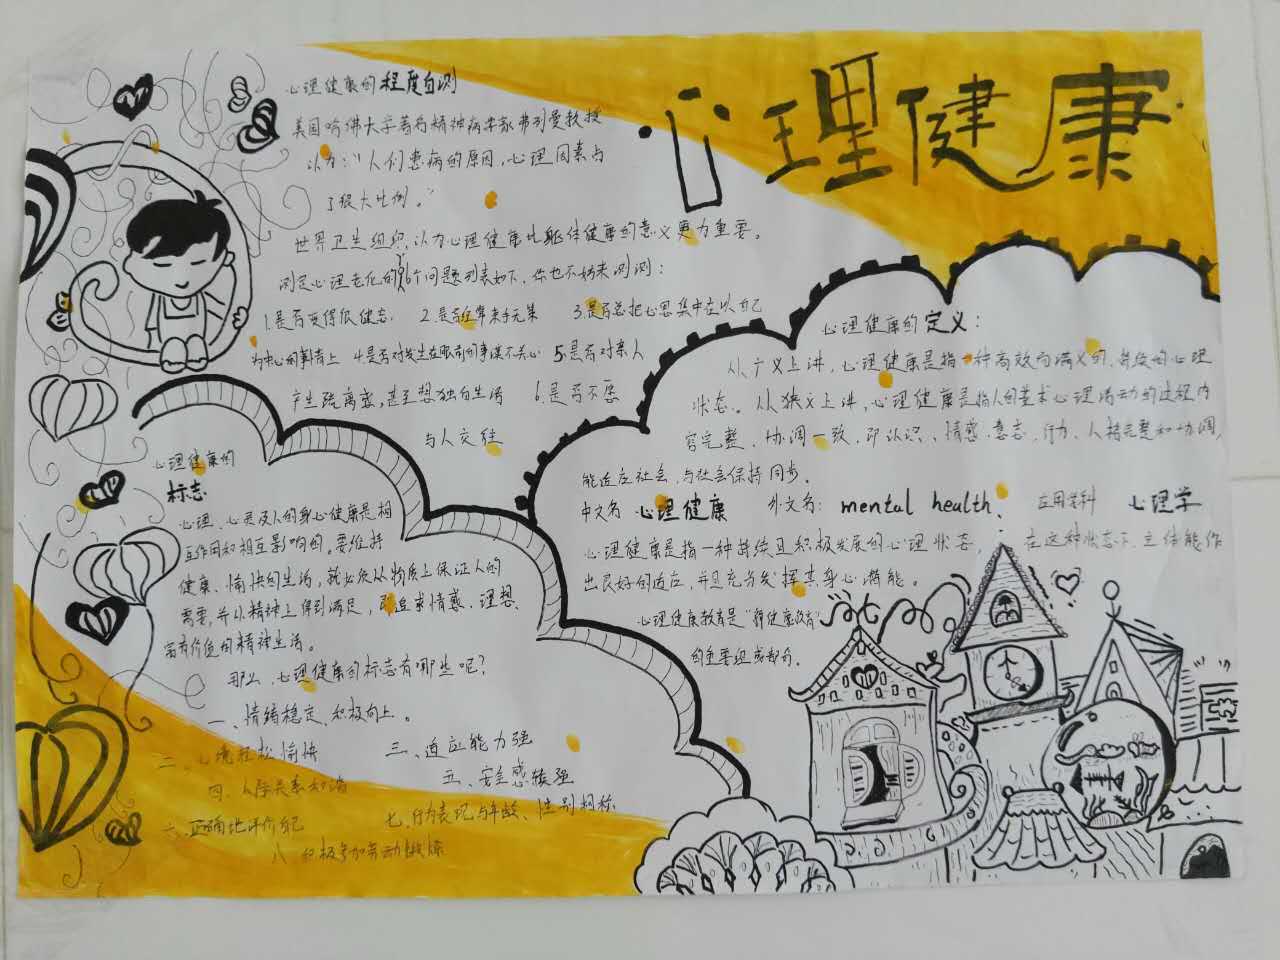 心理健康
心理健康的程度自测
美国哈佛大学著名精神病学家弗列曼教授
认为:"人们患病的原因,心理因素占
了很大比例。"
世界卫生组织,认为心理健康比躯体健康的意义更为重要。
测定心理老化的16个问题列表如下,你也不妨来测测:
1.是否变得很健忘 2.是否经常束手无策 3.是否总把心思集中在以自己
为中心的事情上 4.是否对发生在眼前的事漠不关心 5.是否对亲人
产生疏离感,甚至想独自生活 6.是否不愿
与人交往
心理健康的定义:
从广义上讲,心理健康是指一种高效而满意的、持续的心理
状态。从狭义上讲,心理健康是指人的基本心理活动的过程内
容完整、协调一致,即认识、情感、意志、行为、人格完整和协调,
能适应社会,与社会保持同步。
中文名 心理健康 外文名: mental health、 应用学科 心理学
心理健康是指一种持续且积极发展的心理状态, 在这种状态下,主体能作
出良好的适应,并且充分发挥其身心潜能。
心理健康教育是"健康教育"
的重要组成部分。
心理健康的
标志
心理、心灵及人的身心健康是相
互作用和相互影响的。要维持
健康、愉快的生活,就必须从物质上保证人的
需要,并从精神上得到满足,即追求情感、理想、
富有价值的精神生活。
那么,心理健康的标志有哪些呢?
一、情绪稳定、积极向上。
二、心境轻松愉快 三、适应能力强
四、人际关系和谐 五、安全感较强
六、正确地评价自己 七、行为表现与年龄、性别相称
八、积极参加劳动锻炼